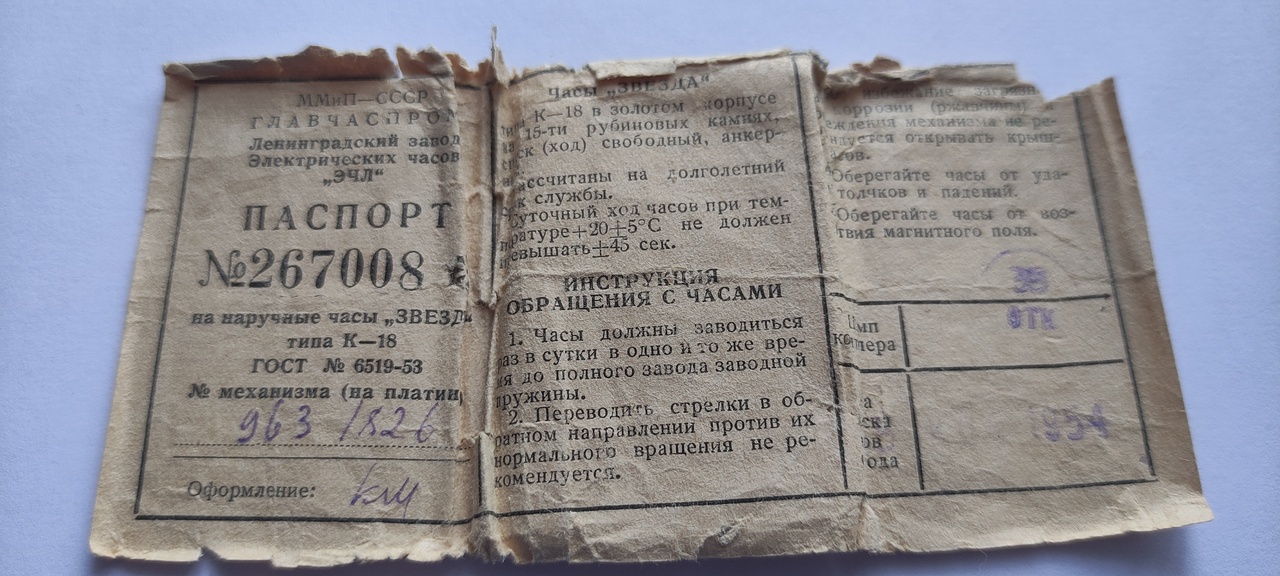 ММиП—СССР
ГЛАВЧАСПРОМ
Ленинградский завод
Электрических часов
„ЭЧЛ“
ПАСПОРТ
№267008
на наручные часы „ЗВЕЗДА
типа К—18
ГОСТ № 6519-53
№ механизма (на платин
963 1826
Оформление:
Часы „ЗВЕЗДА“
К—18 в золотом корпусе
15-ти рубиновых камнях,
ск (ход) свободный, анкер-
ассчитаны на долголетний
к службы.
Суточный ход часов при тем-
ратуре+20±5°С не должен
ревышать±45 сек.
ИНСТРУКЦИЯ
ОБРАЩЕНИЯ С ЧАСАМИ
1. Часы должны заводиться
раз в сутки в одно и то же вре-
я до полного завода заводной
пружины.
2. Переводить стрелки в об-
ратном направлении против их
нормального вращения не ре-
комендуется.
избежание загрязн
коррозии (ржавчины) и
еждения механизма не ре-
ндуется открывать крыш-
асов.
Оберегайте часы от уда-
толчков и падений.
Оберегайте часы от воз-
твия магнитного поля.
35
ОТК
954